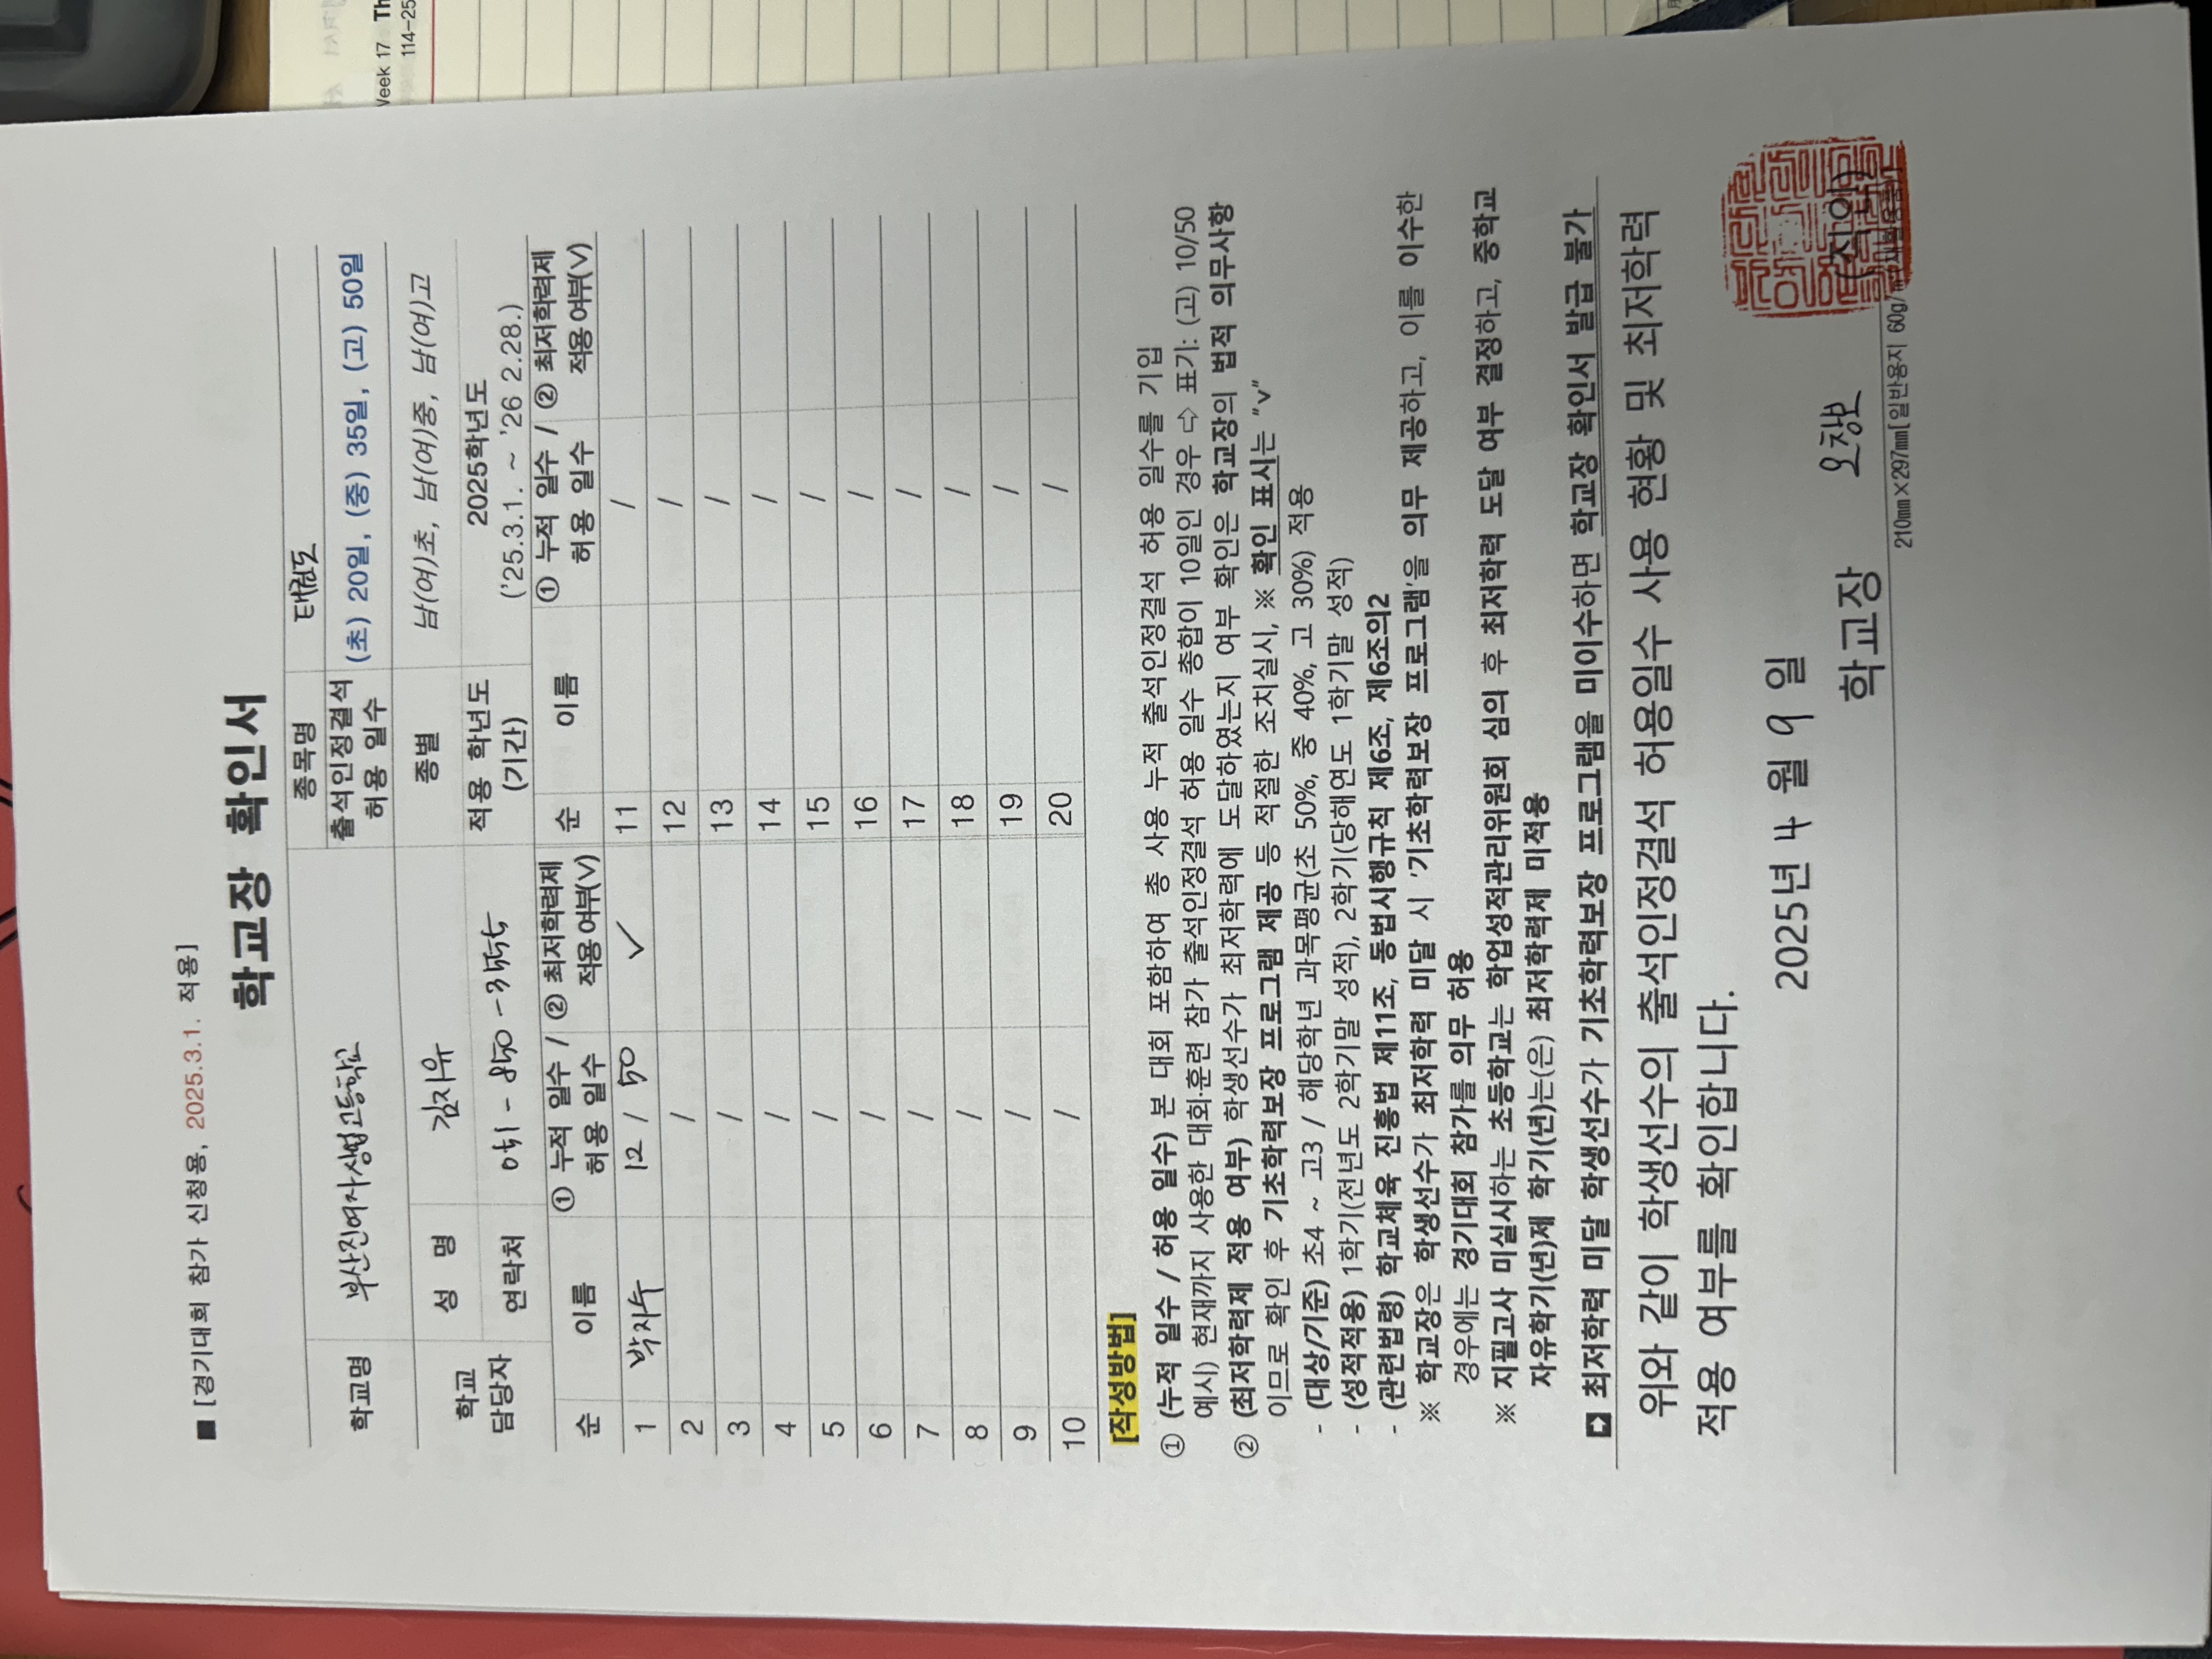 Week 17 Th
114-25
■ [경기대회 참가 신청용, 2025.3.1. 적용]
학교장 확인서
학교명 부산진여자상업고등학교 종목명 태권도
출석인정결석 허용 일수 (초) 20일, (중) 35일, (고) 50일
학교 담당자 성 명 김지유 종별 남(여)초, 남(여)중, 남(여)고
연락처 적용 학년도 (기간) 2025학년도 ('25.3.1. ~ '26 2.28.)
순 이름 ① 누적 일수 / 허용 일수 ② 최저학력제 적용 여부(V) 순 이름 ① 누적 일수 / 허용 일수 ② 최저학력제 적용 여부(V)
1 박지수 12 / 50 ✓ 11 /
2 / 12 /
3 / 13 /
4 / 14 /
5 / 15 /
6 / 16 /
7 / 17 /
8 / 18 /
9 / 19 /
10 / 20 /
[작성방법]
① (누적 일수 / 허용 일수) 본 대회 포함하여 총 사용 누적 출석인정결석 허용 일수를 기입
예시) 현재까지 사용한 대회·훈련 참가 출석인정결석 허용 일수 총합이 10일인 경우 ⇨ 표기: (고) 10/50
② (최저학력제 적용 여부) 학생선수가 최저학력에 도달하였는지 여부 확인은 학교장의 법적 의무사항
이므로 확인 후 기초학력보장 프로그램 제공 등 적절한 조치실시, ※ 확인 표시는 "v"
- (대상/기준) 초4 ~ 고3 / 해당학년 과목평균(초 50%, 중 40%, 고 30%) 적용
- (성적적용) 1학기(전년도 2학기말 성적), 2학기(당해연도 1학기말 성적)
- (관련법령) 학교체육 진흥법 제11조, 동법시행규칙 제6조, 제6조의2
※ 학교장은 학생선수가 최저학력 미달 시 '기초학력보장 프로그램'을 의무 제공하고, 이를 이수한
경우에는 경기대회 참가를 의무 허용
※ 지필고사 미실시하는 초등학교는 학업성적관리위원회 심의 후 최저학력 도달 여부 결정하고, 중학교
자유학기(년)제 학기(년)는(은) 최저학력제 미적용
➡ 최저학력 미달 학생선수가 기초학력보장 프로그램을 미이수하면 학교장 확인서 발급 불가
위와 같이 학생선수의 출석인정결석 허용일수 사용 현황 및 최저학력
적용 여부를 확인합니다.
2025년 4 월 9 일
학교장 (직인)
210㎜×297㎜[일반용지 60g/㎡(재활용품)]